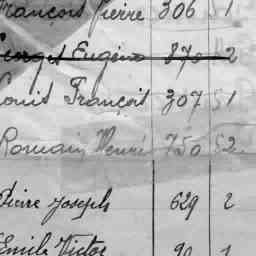 François Pierre 306 51
Georges Eugène 870 2
Louis François 307 51
Romain Henri 750 52
Pierre Joseph 629 2
Emile Victor 90 1